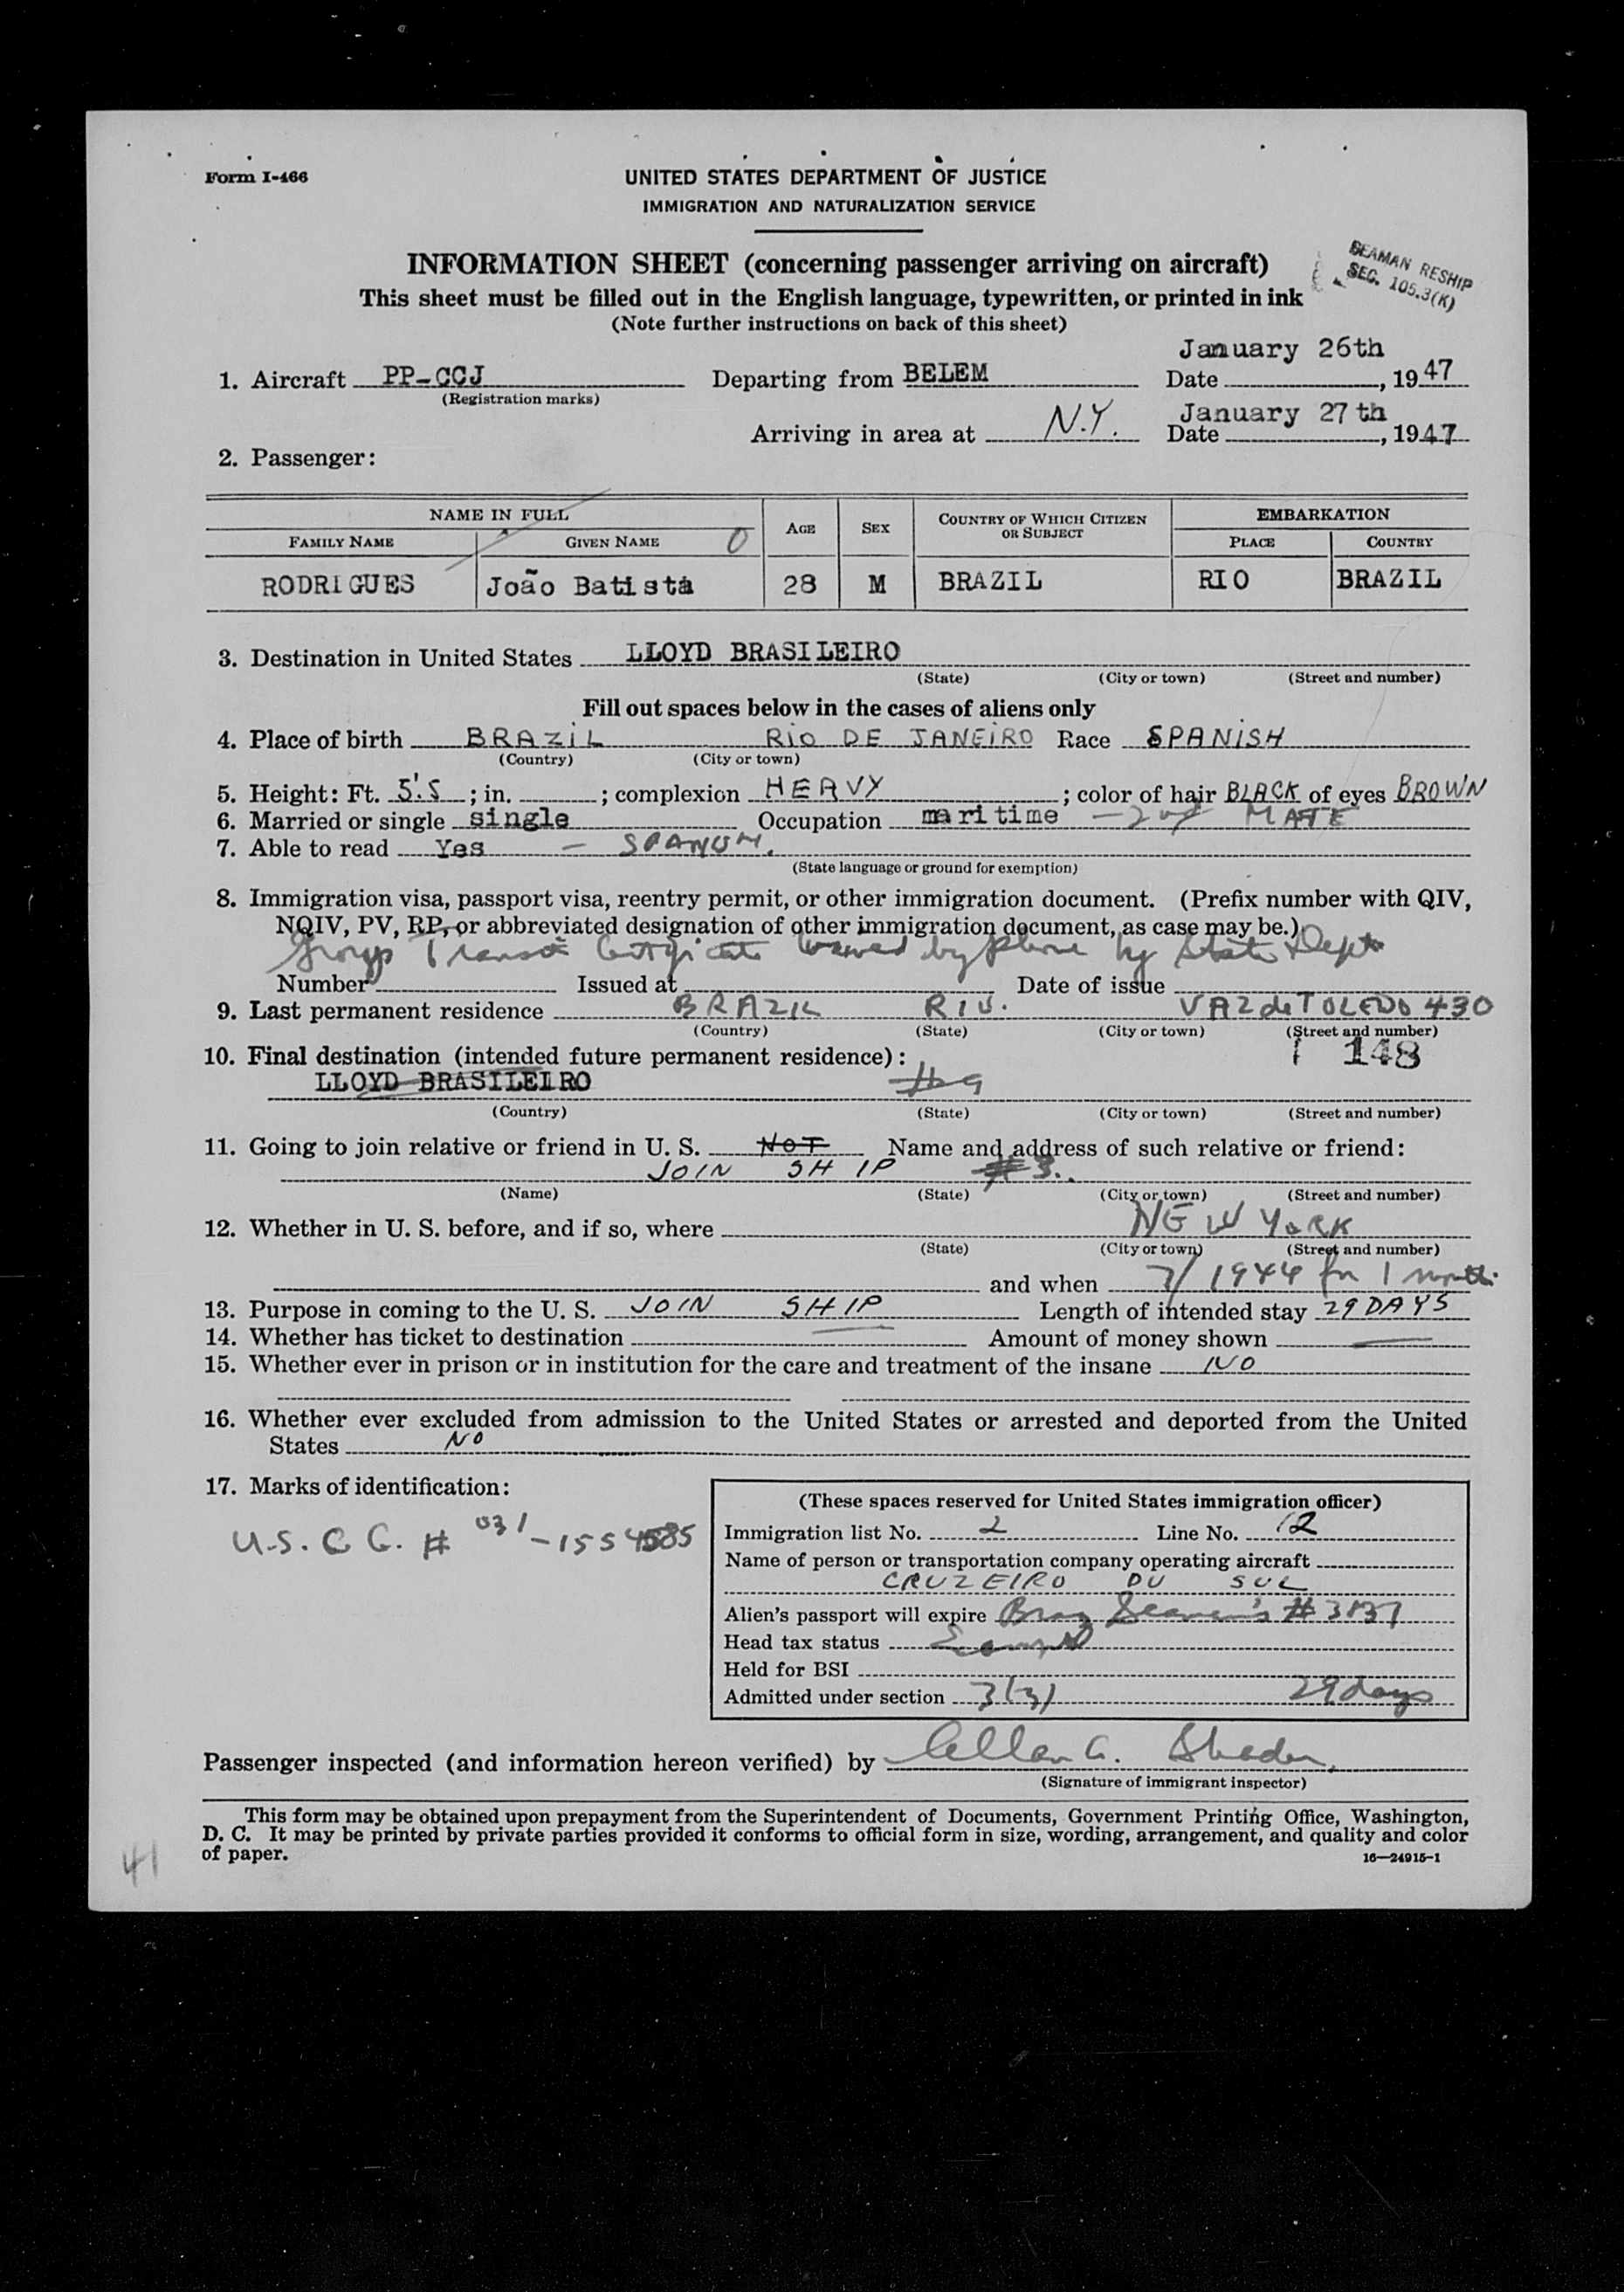 Form I-466
UNITED STATES DEPARTMENT OF JUSTICE
IMMIGRATION AND NATURALIZATION SERVICE
INFORMATION SHEET (concerning passenger arriving on aircraft)
SEAMAN RESHIP
SEC. 105.3(K)
This sheet must be filled out in the English language, typewritten, or printed in ink
(Note further instructions on back of this sheet)
1. Aircraft PP-CCJ Departing from BELEM Date January 26th, 1947
(Registration marks)
Arriving in area at N.Y. Date January 27th, 1947
2. Passenger:
NAME IN FULL AGE SEX COUNTRY OF WHICH CITIZEN OR SUBJECT EMBARKATION
FAMILY NAME GIVEN NAME 0 PLACE COUNTRY
RODRIGUES João Batista 28 M BRAZIL RIO BRAZIL
3. Destination in United States LLOYD BRASILEIRO
(State) (City or town) (Street and number)
Fill out spaces below in the cases of aliens only
4. Place of birth BRAZIL RIO DE JANEIRO Race SPANISH
(Country) (City or town)
5. Height: Ft. 5'.5 ; in. ; complexion HEAVY ; color of hair BLACK of eyes BROWN
6. Married or single single Occupation maritime - 2nd MATE
7. Able to read Yes -
(State language or ground for exemption)
8. Immigration visa, passport visa, reentry permit, or other immigration document. (Prefix number with QIV,
NQIV, PV, RP, or abbreviated designation of other immigration document, as case may be.)
Group Transit Certificate waived by phone by State Dept
Number Issued at Date of issue
9. Last permanent residence BRAZIL RIO. VAZ de TOLEDO 430
(Country) (State) (City or town) (Street and number)
148
10. Final destination (intended future permanent residence):
LLOYD BRASILEIRO
(Country) (State) (City or town) (Street and number)
11. Going to join relative or friend in U. S. NOT Name and address of such relative or friend:
JOIN SHIP #3.
(Name) (State) (City or town) (Street and number)
12. Whether in U. S. before, and if so, where NEW YORK
(State) (City or town) (Street and number)
and when 7/1944 for 1 month.
13. Purpose in coming to the U. S. JOIN SHIP Length of intended stay 29 DAYS
14. Whether has ticket to destination Amount of money shown
15. Whether ever in prison or in institution for the care and treatment of the insane NO
16. Whether ever excluded from admission to the United States or arrested and deported from the United
States NO
17. Marks of identification:
U.S. C G. # 031-1554585
(These spaces reserved for United States immigration officer)
Immigration list No. 2 Line No. 12
Name of person or transportation company operating aircraft
CRUZEIRO DU SUL
Alien's passport will expire Braz Seaman's # 3137
Head tax status Exempt
Held for BSI
Admitted under section 3(3) 29 days
Passenger inspected (and information hereon verified) by Allan G.
(Signature of immigrant inspector)
This form may be obtained upon prepayment from the Superintendent of Documents, Government Printing Office, Washington,
D. C. It may be printed by private parties provided it conforms to official form in size, wording, arrangement, and quality and color
of paper.
16—24915-1
41